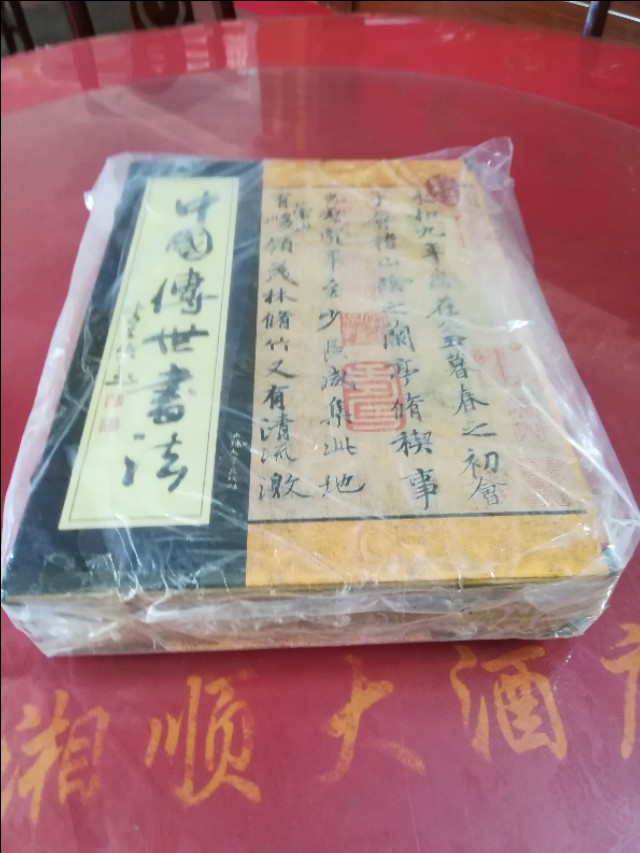 中國傳世書法
永和九年歲在癸丑暮春之初會
于會稽山陰之蘭亭脩稧事
也羣賢畢至少長咸集此地
有峻領茂林脩竹又有清流激
崇山
湘順大酒